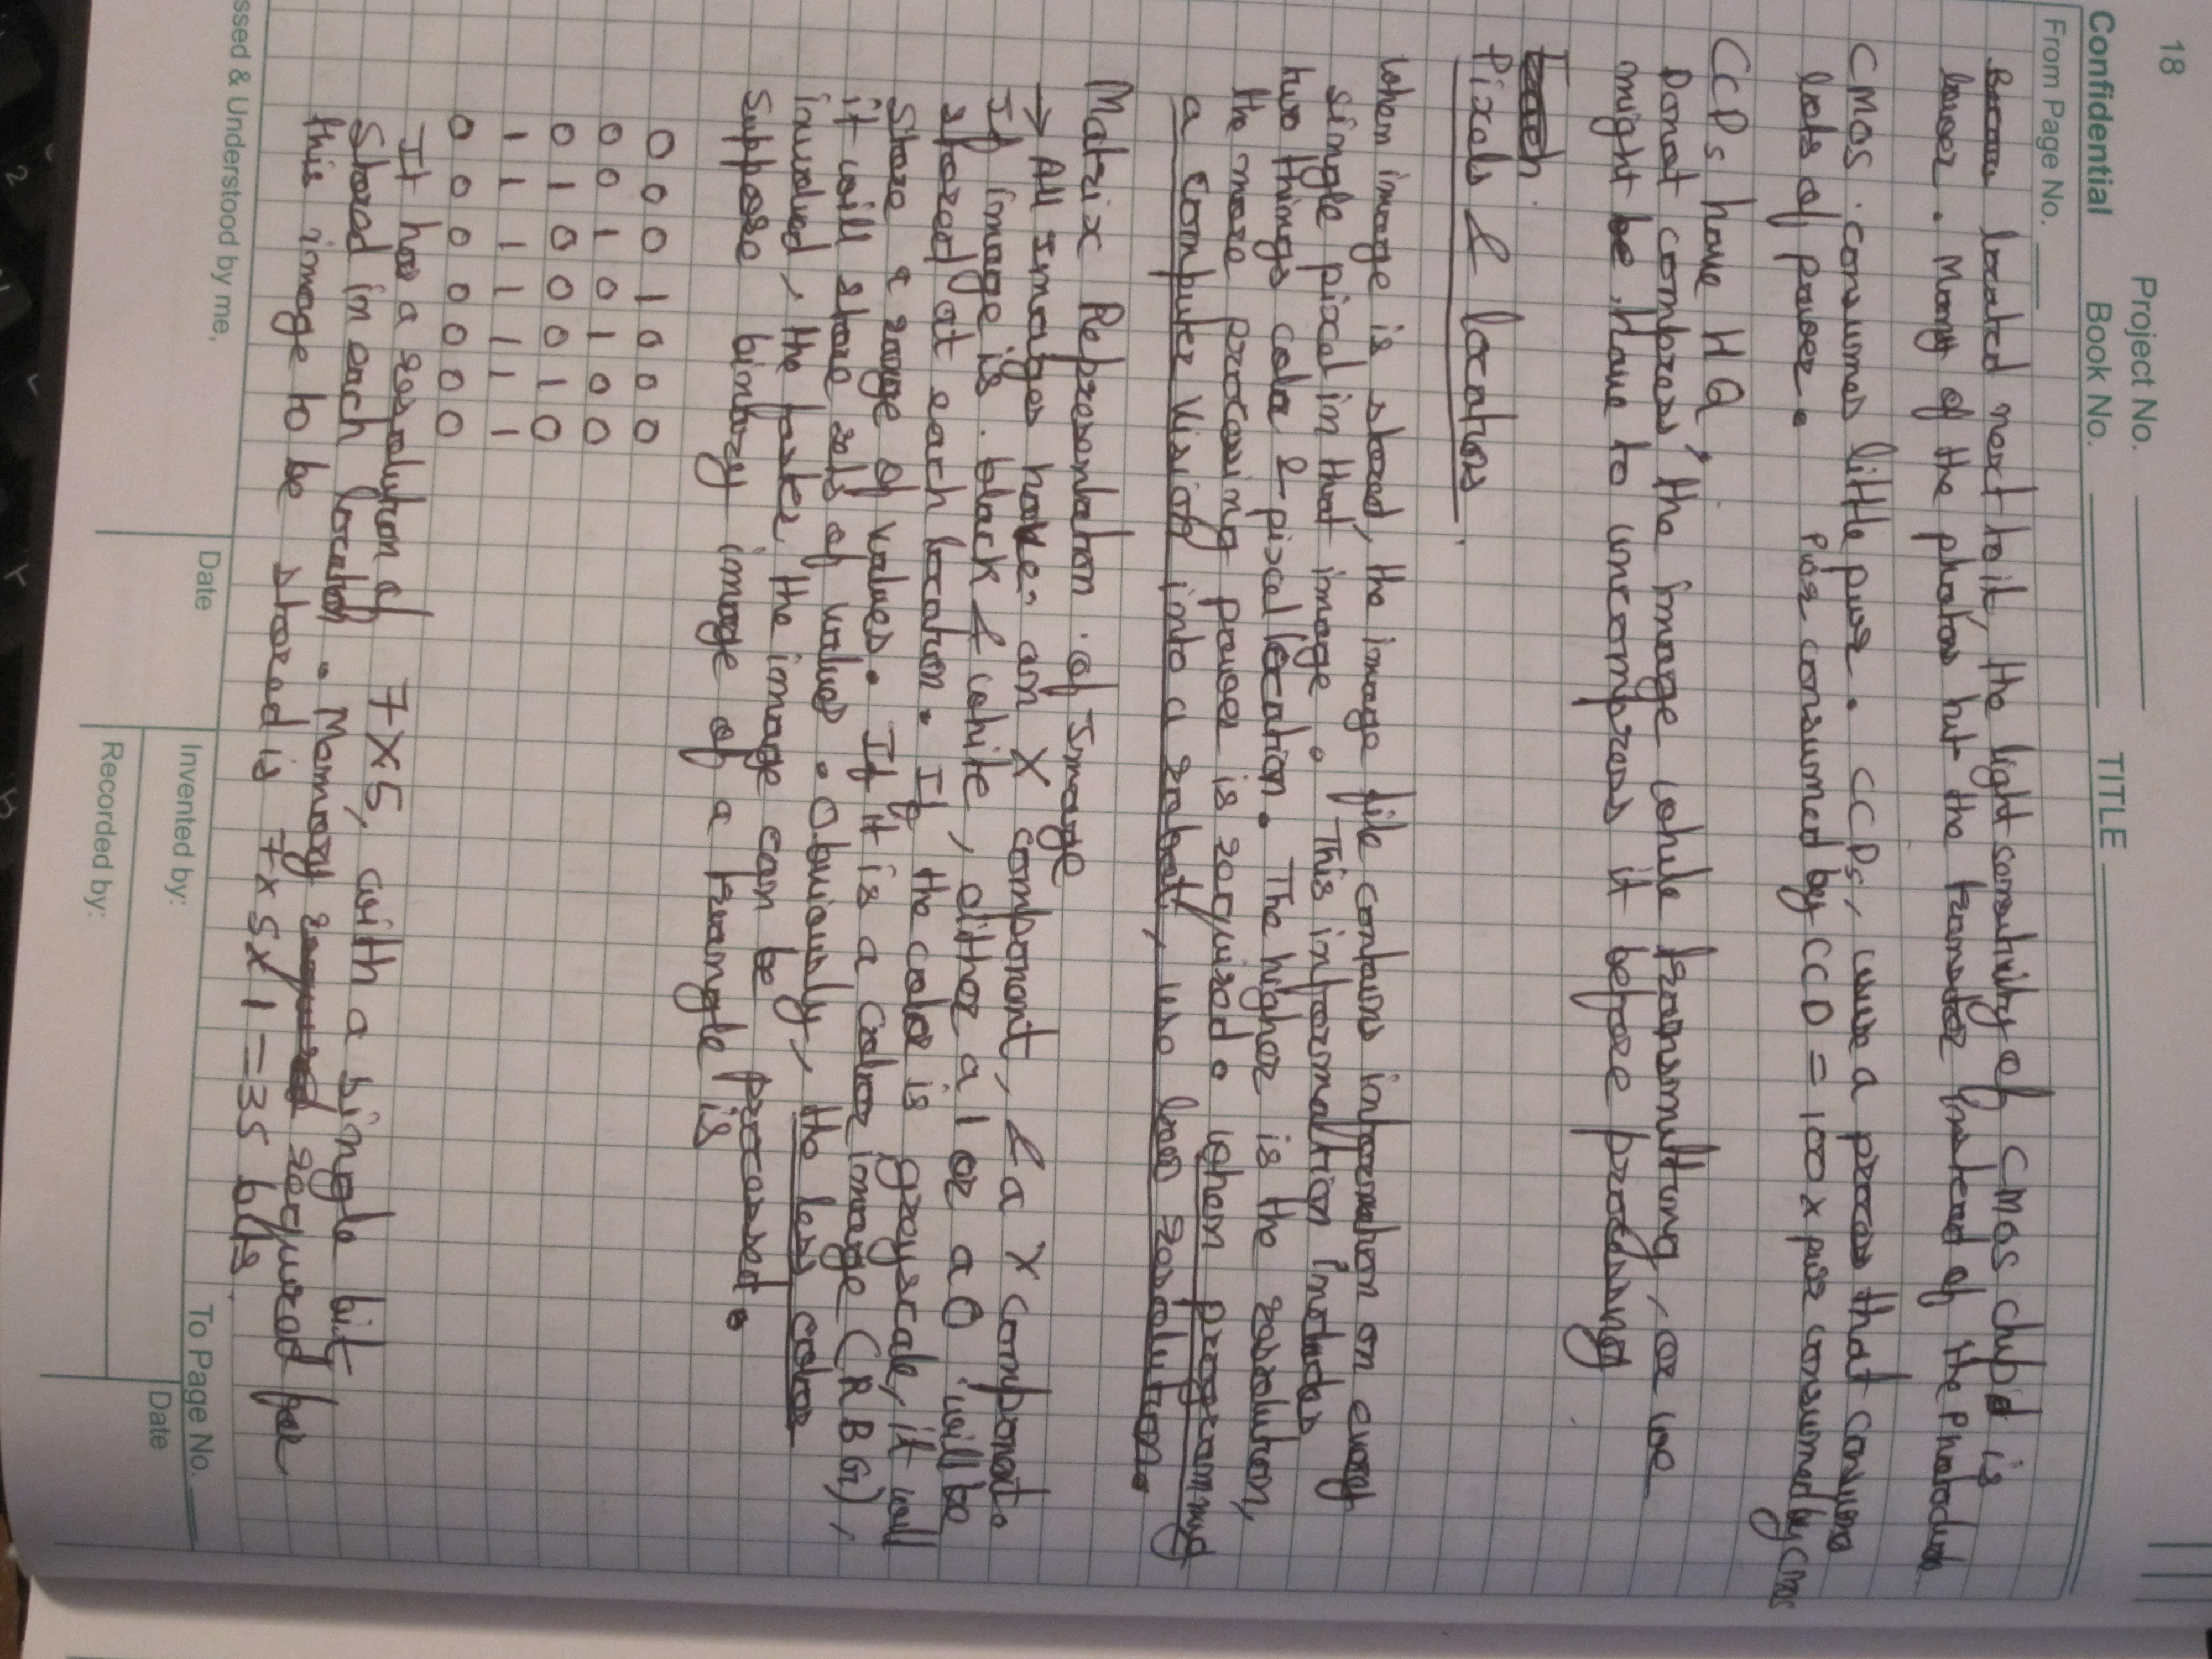 18
Project No.
Confidential Book No. TITLE
From Page No.
located next to it, the light sensitivity of CMOS chips is
lower. Many of the photons hit the transistor instead of the Photodiode
CMOS. consumes little pwr. CCDs, uses a process that consumes
lots of power. Pwr consumed by CCD = 100 x pwr consumed by CMOS
CCDs have HQ,
Donot compress, the image while transmitting, or we
might be have to uncompress it before processing
Pixels & locations
When image is stored, the image file contains information on every
single pixel in that image. This information includes
two things color & pixel location. The higher is the resolution,
the more processing power is required. When programming
a Computer Vision into a robot, use less resolution.
Matrix Representation of Image
→ All Images have an X Component, & a Y component.
If image is black & white, either a 1 or a 0 will be
stored at each location. If the color is greyscale, it will
store a range of values. If it is a color image (RBG),
it will store sets of values. Obviously, the less color
involved, the faster the image can be processed.
Suppose binary image of a triangle is
0 0 0 1 0 0 0
0 0 1 0 1 0 0
0 1 0 0 0 1 0
1 1 1 1 1 1 1
0 0 0 0 0 0 0
It has a resolution of 7 X 5, with a single bit
Stored in each location. Memory required for
this image to be stored is 7 x 5 x 1 = 35 bits.
To Page No.
ssed & Understood by me, Date Invented by: Date
Recorded by: